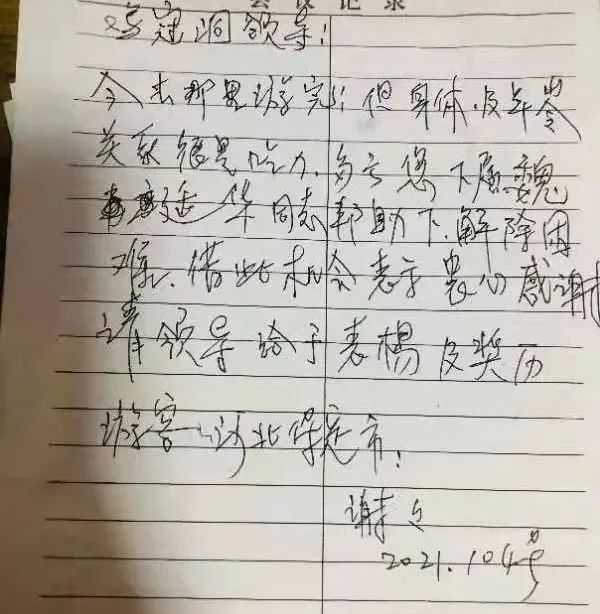 会议记录
鸡冠洞领导:
今去那里游完;但身体.及年岺
关系很是吃力.多亏您下属魏
延华同志帮助下.解除困
难.借此机会表示衷心感谢
请领导给予表楊及奖历
游客:河北保定市;
谢
2021.10.4号